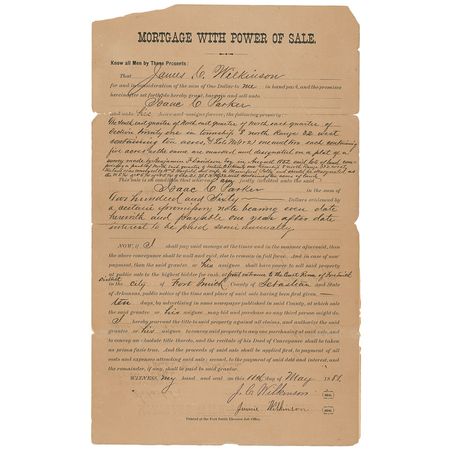 MORTGAGE WITH POWER OF SALE.
Know all Men by These Presents:
That James C. Wilkinson
for and in consideration of the sum of One Dollar to me in hand paid, and the promises
hereinafter set forth do hereby grant, bargain and sell unto
Isaac C Parker
and unto his heirs and assigns forever, the following property:
The North east quarter of North east quarter of North east quarter of
Section twenty one in township 8 north Range 32 west
containing ten acres, & Lots No's
five acres as the same are marked and designated on a plat of a
survey made by Benjamin F. Davidson Esq in August 1882
This sale is on condition, that whereas I am justly indebted unto the said
Isaac C Parker in the sum of
Five hundred and Sixty Dollars evidenced by
a certain promissory note bearing even date
herewith and payable one year after date
interest to be paid semi annually.
NOW, if I shall pay said moneys at the times and in the manner aforesaid, then
the above conveyance shall be null and void, else to remain in full force. And in case of non-
payment, then the said grantee or his assignee shall have power to sell said property
at public sale to the highest bidder for cash, at front entrance to the Court House of Fort Smith
District
in the City of Fort Smith County of Sebastian and State
of Arkansas, public notice of the time and place of said sale having been first given
ten days, by advertising in some newspaper published in said County, at which sale
the said grantee or his assignee may bid and purchase as any third person might do.
I hereby warrant the title to said property against all claims, and authorize the said
grantee or his assignee becoming said property to any one purchasing at said sale, and
to convey an absolute title thereto, and the recitals of his Deed of Conveyance shall be taken
as prima facie true. And the proceeds of said sale shall be applied first, to payment of all
costs and expenses attending said sale; second, to the payment of said debt and interest, and
the remainder, if any, shall be paid to said grantor.
WITNESS, my hand and seal on this 11th day of May 188
J. C. Wilkinson SEAL
Jennie Wilkinson SEAL
Printed at the Fort Smith Elevator Job Office.